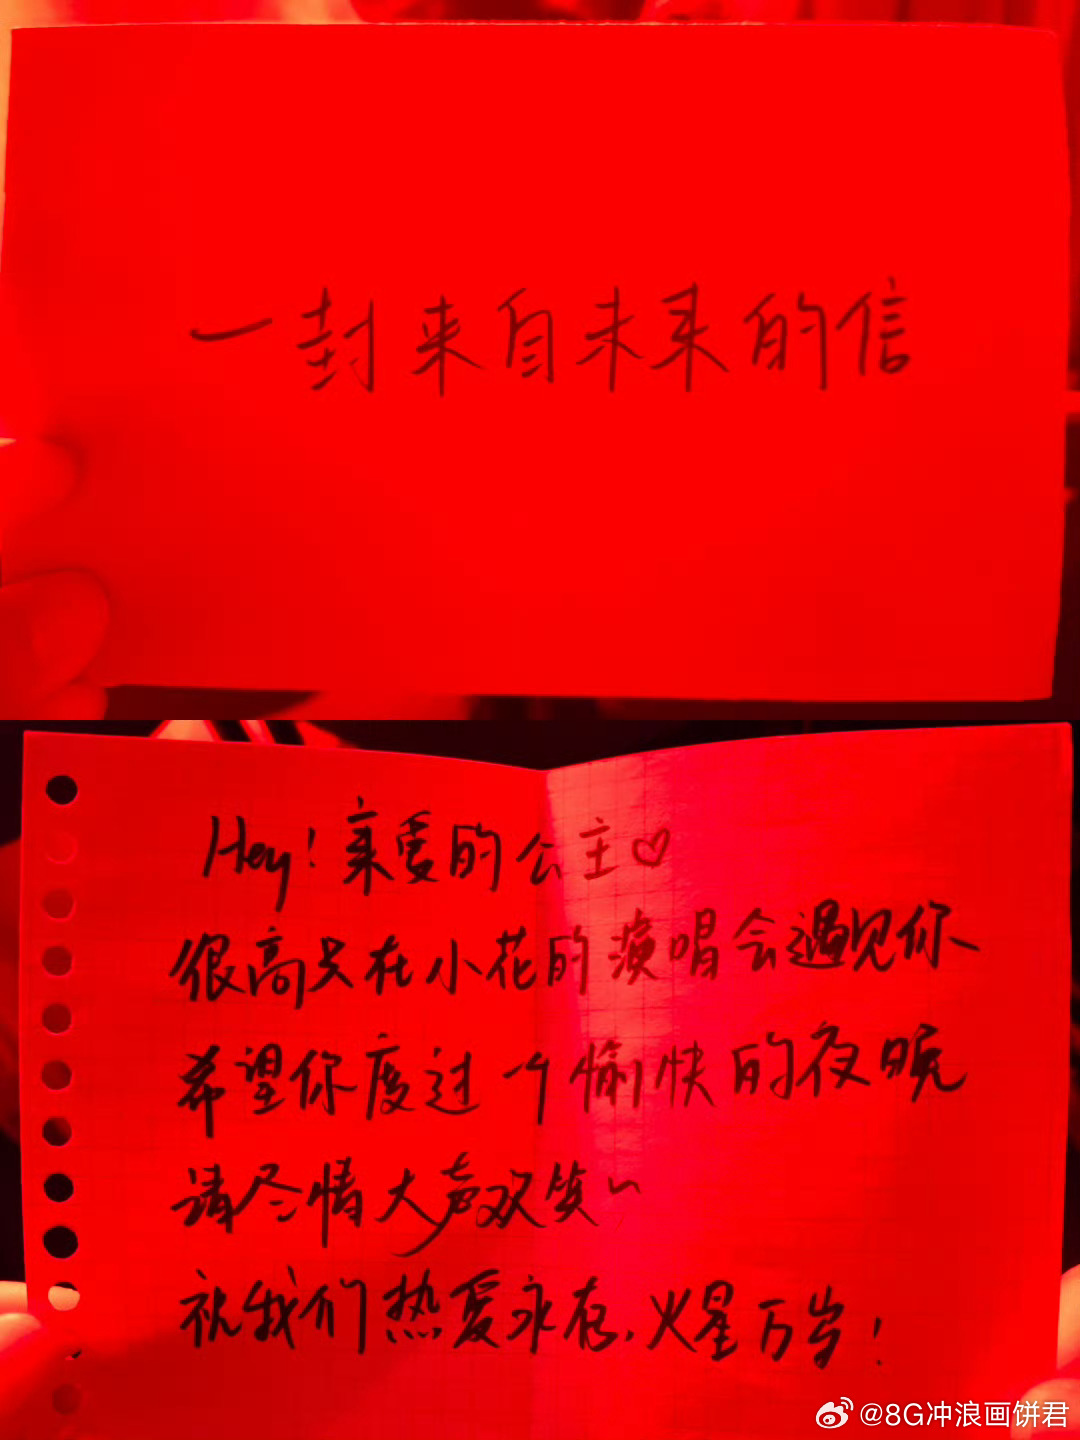 一封来自未来的信
Hey！亲爱的公主♡
很高兴在小花的演唱会遇见你
希望你度过一个愉快的夜晚
请尽情大声欢笑~
祝我们热爱永存，火星万岁！
@8G冲浪画饼君